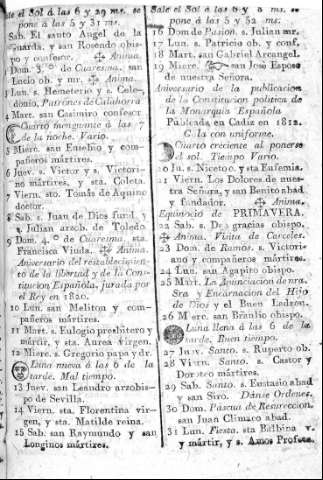 Sale el Sol á las 6 y 29 ms. se
pone á las 5 y 31 ms.
Sab. El santo Angel de la
Guarda, y san Rosendo obis-
po y confesor. ✠ Anima.
Dom. 3.° de Cuaresma, san
obr. y mr. ✠ Anima.
Lun. s. Hemeterio y s. Cele-
donio, Patrones de Calahorra
4 Mart. san Casimiro confesor
Cuarto menguante á las 7
de la noche. Vario.
5 Mierc. san Eusebio y com-
pañeros mártires.
6 Juev. s. Victor y s. Victori-
no mártires, y sta. Coleta.
7 Viern. sto. Tomás de Aquino
doctor.
8 Sab. s. Juan de Dios fund. y
s. Julian arzob. de Toledo.
9 Dom. 4.° de Cuaresma. sta.
Francisca Viuda. ✠ Anima.
Aniversario del restablecimien-
to de la libertad y de la Cons-
titucion Española, jurada por
el Rey en 1820.
10 Lun. san Meliton y com-
pañeros mártires.
11 Mart. s. Eulogio presbitero y
mártir, y sta. Aurea virgen.
12 Mierc. s. Gregorio papa y dr.
Luna nueva á las 6 de la
tarde. Mal tiempo.
13 Juev. san Leandro arzobis-
po de Sevilla.
14 Viern. sta. Florentina vir-
gen, y sta. Matilde reina.
15 Sab. san Raymundo y san
Longinos mártires.
Sale el Sol á las 6 y 8 ms. se
pone á las 5 y 52 ms.
16 Dom de Pasion. s. Julian mr.
17 Lun. s. Patricio ob. y conf.
18 Mart. san Gabriel Arcangel.
19 Mierc. san José Esposo
de nuestra Señora.
Aniversario de la publicacion
de la Constitucion politica de
la Monarquia Española
Publicada en Cadiz en 1812.
Gala con uniforme.
Cuarto creciente al ponerse
el sol. Tiempo Vario.
20 Ju. s. Niceto, y sta Eufemia.
21 Viern. Los Dolores de nues-
tra Señora, y san Benito abad
y fundador. ✠ Anima.
Equinocio de PRIMAVERA.
22 Sab. s. Deogracias obispo.
✠ Anima. Visita de Carceles.
23 Dom. de Ramos. s. Victori-
ano y compañeros mártires.
24 Lun. san Agapito obispo.
25 Mart. La Anunciacion de nra.
Sra y Encarnacion del Hijo
de Dios y el Buen Ladron.
26 Mierc. san Braulio obispo.
Luna llena á las 6 de la
tarde. Buen tiempo.
27 Juev. Santo. s. Ruperto ob.
28 Viern. Santo. s. Castor y
Doroteo mártires.
29 Sab. Santo. s. Eustasio abad
y san Siro. Danse Ordenes.
30 Dom. Pascua de Resurreccion.
san Juan Climaco abad.
31 Lun. Fiesta. sta Balbina v.
y mártir, y s. Amos Profeta.